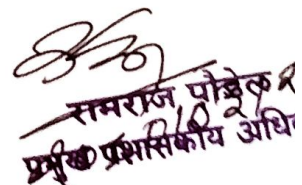 रामराज पौडेल
प्रमुख प्रशासकीय अधि